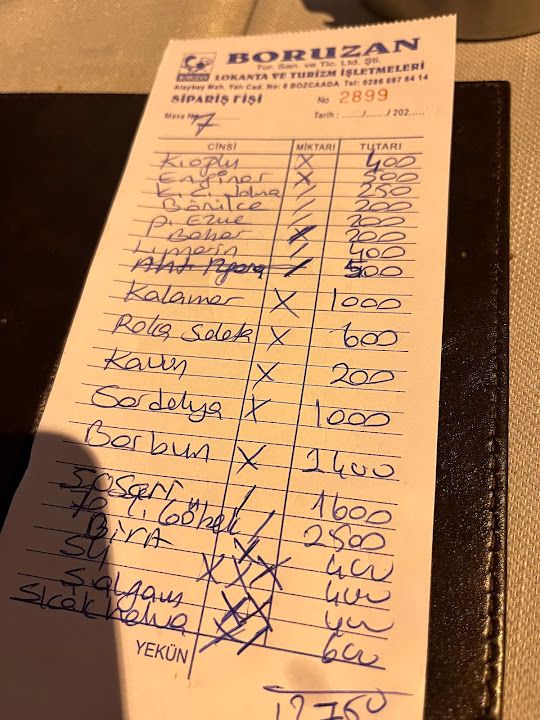 BORUZAN
Tur. San. ve Tic. Ltd. Şti.
BORUZAN LOKANTA VE TURİZM İŞLETMELERİ
Alaybey Mah. Yalı Cad. No: 6 BOZCAADA Tel: 0286 697 84 14
SİPARİŞ FİŞİ No 2899
Masa No 7 Tarih : ....../....../ 202.....
CİNSİ MİKTARI TUTARI
X 400
Enginar X 500
/ 250
Börülce / 200
Ezme / 200
Bahar X 200
/ 400
/ 500
Kalamar X 1000
Roka Salata X 600
Kavun X 200
Sardalya X 1000
Barbun X 2400
/ 1600
70 lik Göbek / 2500
BİRA X 400
SU XXX 400
Şalgam XX 400
Sıcak Helva X/ 600
YEKÜN 12750